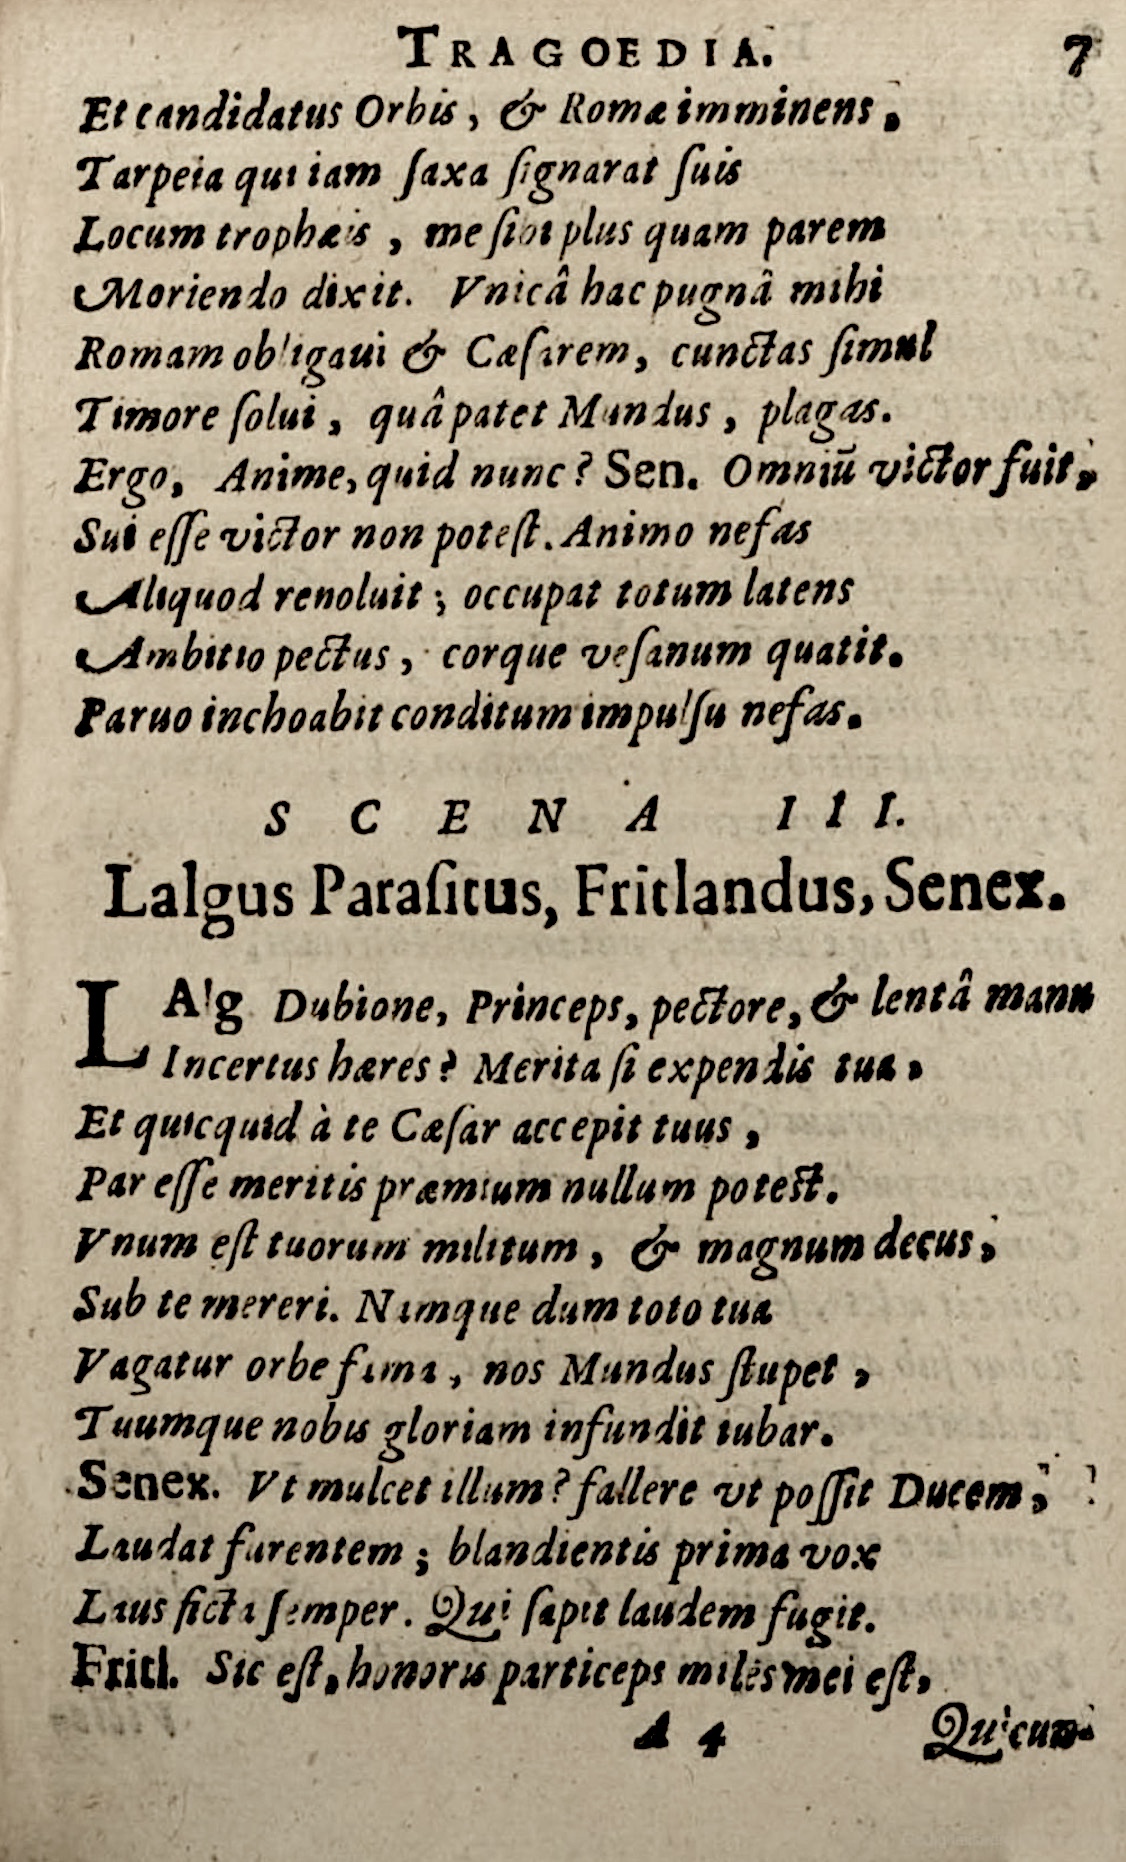 TRAGOEDIA. 7
Et candidatus Orbis, & Romæ imminens,
Tarpeia qui iam ſaxa ſignarat ſuis
Locum trophæis, me ſibi plus quam parem
Moriendo dixit. Vnicâ hac pugnâ mihi
Romam obligaui & Cæſarem, cunctas ſimul
Timore ſolui, quâ patet Mundus, plagas.
Ergo, Anime, quid nunc? Sen. Omniū victor fuit,
Sui eſſe victor non poteſt. Animo nefas
Aliquod renoluit; occupat totum latens
Ambitio pectus, corque veſanum quatit.
Paruo inchoabit conditum impulſu nefas.
SCENA III.
Lalgus Paraſitus, Fritlandus, Senex.
LAlg Dubione, Princeps, pectore, & lentâ manu
Incertus hæres? Merita ſi expendis tua,
Et quicquid à te Cæſar accepit tuus,
Par eſſe meritis præmium nullum poteſt.
Vnum eſt tuorum militum, & magnum decus,
Sub te mereri. Namque dum toto tua
Vagatur orbe fama, nos Mundus ſtupet,
Tuumque nobis gloriam infundit iubar.
Senex. Vt mulcet illum? fallere vt poſſit Ducem,
Laudat furentem; blandientis prima vox
Laus ficta ſemper. Qui ſapit laudem fugit.
Fritl. Sic eſt, honoris particeps miles mei eſt,
A 4 Quicun-